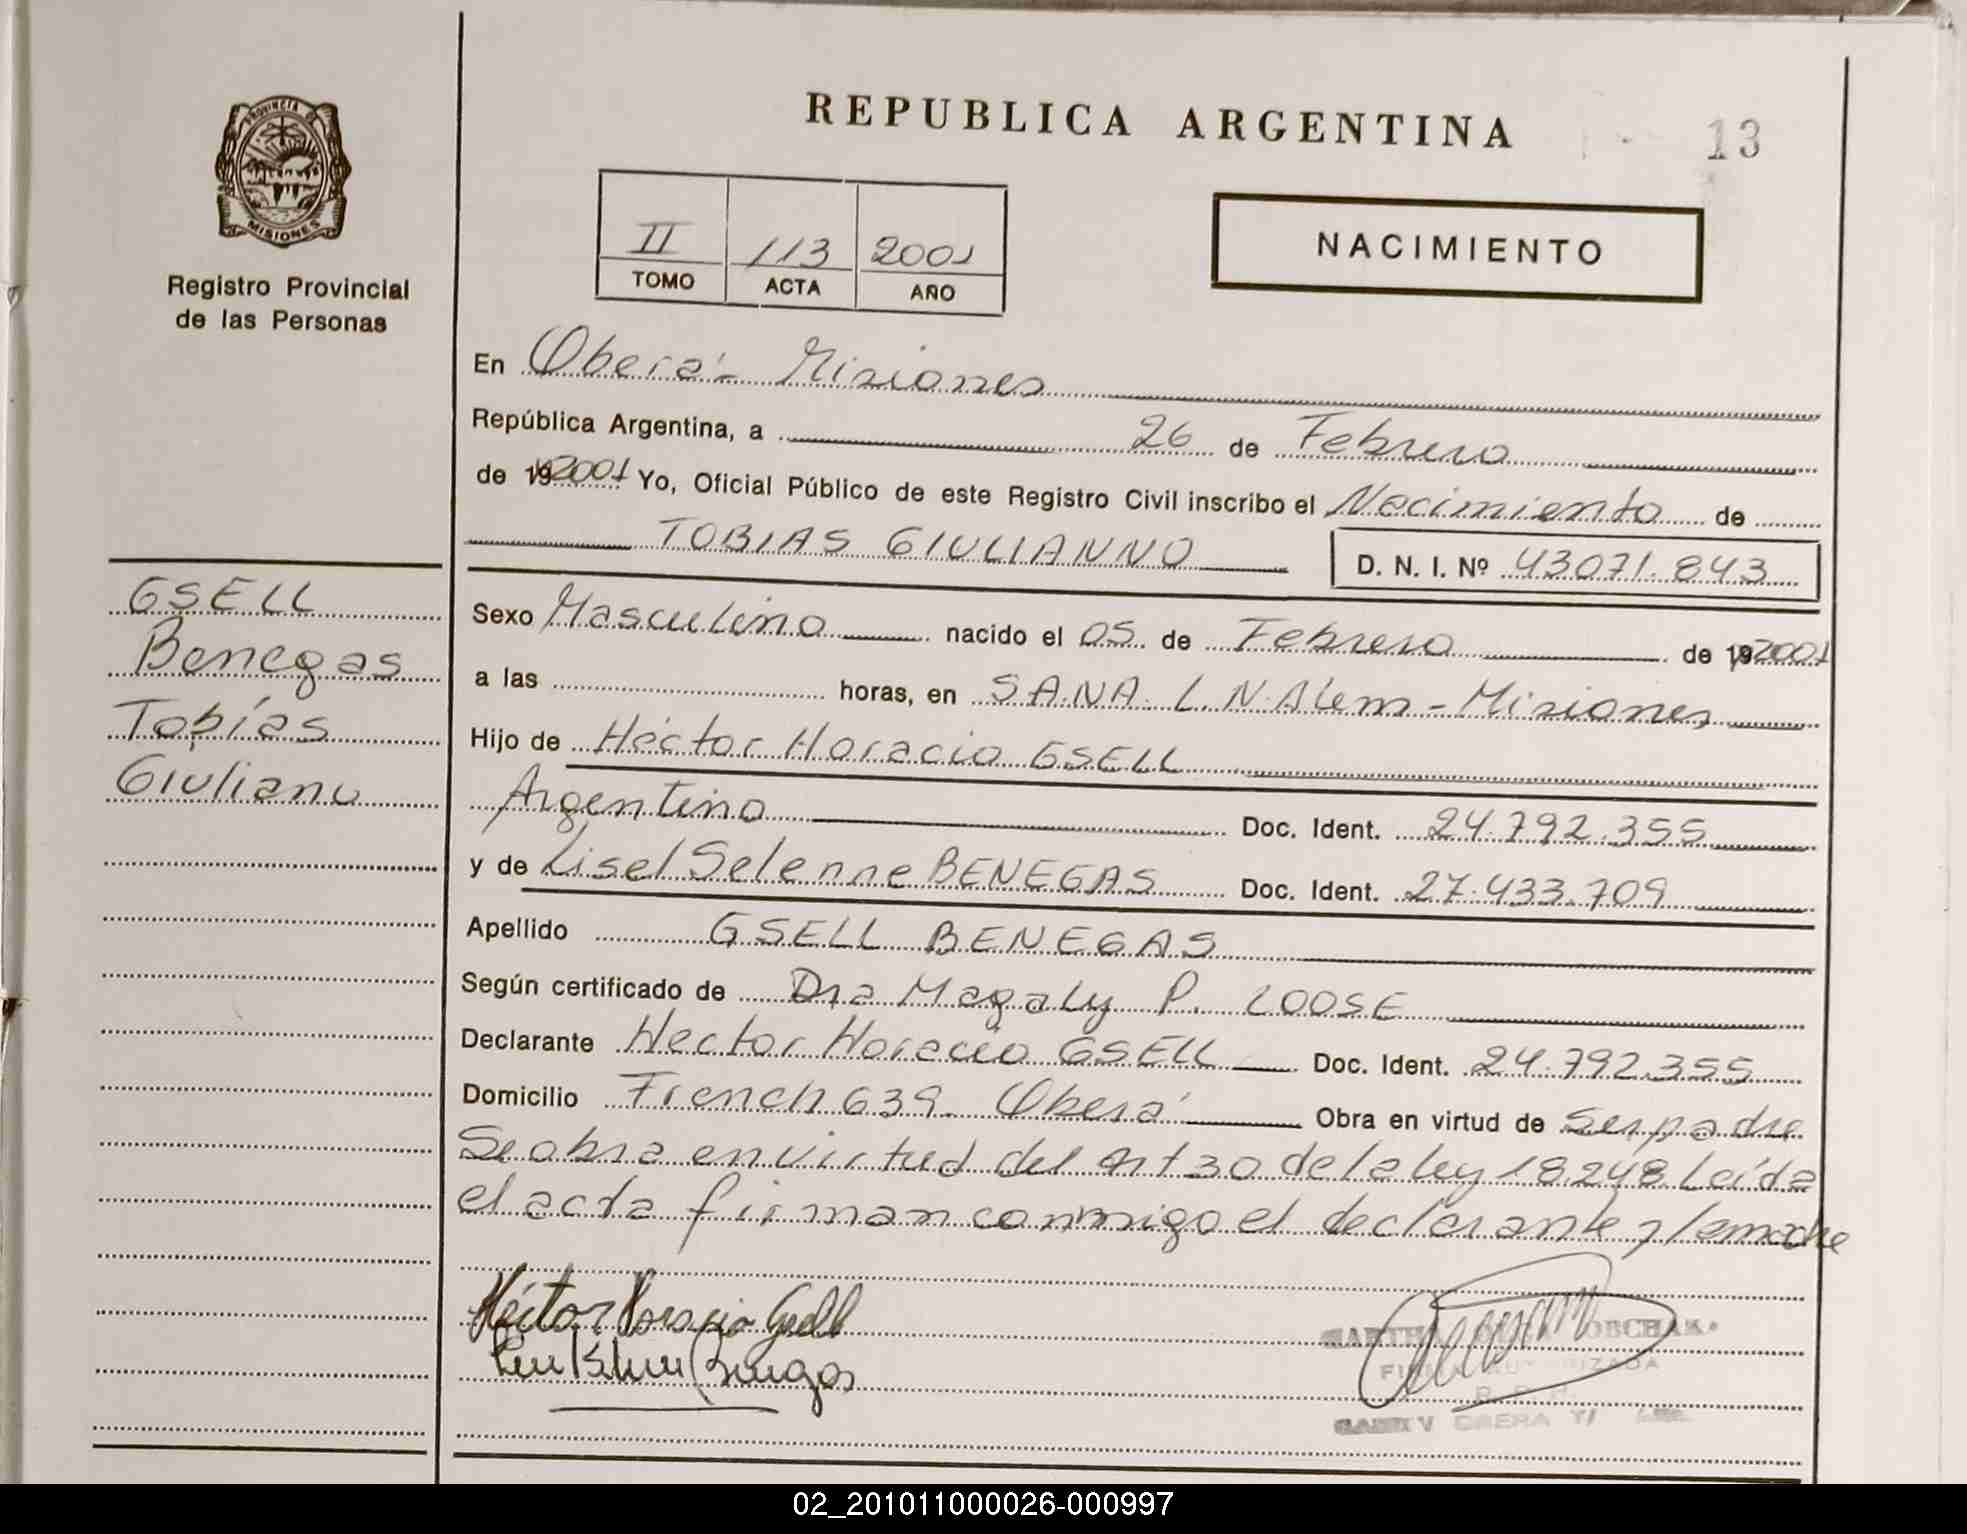 REPUBLICA ARGENTINA
13
PROVINCIA DE
MISIONES
Registro Provincial
de las Personas
II 113 2001
TOMO ACTA AÑO
NACIMIENTO
En Oberá - Misiones
República Argentina, a 26 de Febrero
de 192001 Yo, Oficial Público de este Registro Civil inscribo el Nacimiento de
TOBIAS GIULIANNO D. N. I. Nº 43071.843
GSELL
Benegas
Tobías
Giuliano
Sexo Masculino nacido el 05 de Febrero de 192001
a las horas, en S.A.NA. L.N.Alem - Misiones
Hijo de Héctor Horacio GSELL
Argentino Doc. Ident. 24.792.355
y de Lisel Selenne BENEGAS Doc. Ident. 27.433.709
Apellido GSELL BENEGAS
Según certificado de Dra Magaly P. LOOSE
Declarante Hector Horacio GSELL Doc. Ident. 24.792.355
Domicilio French 639. Oberá Obra en virtud de ser padre
Se obra en virtud del art 30 de la ley 18.248. Leída
el acta firman conmigo el declarante y la madre
Héctor Horacio Gsell
MARTHA
FIRMA AUTORIZADA
OBERA
02_201011000026-000997